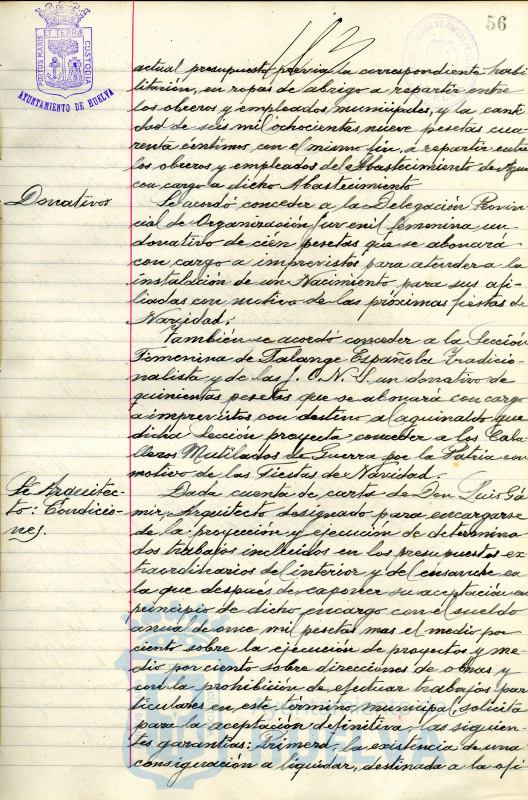 56
PORTUS MARIS ET TERRÆ CUSTODIA
AYUNTAMIENTO DE HUELVA
actual presupuesto previa la correspondiente habi
litación, en ropas de abrigo a repartir entre
los obreros y empleados municipales, y la canti
dad de seis mil ochocientas nueve pesetas cua
renta céntimos con el mismo fin, a repartir entre
los obreros y empleados del Abastecimiento de Aguas
con cargo a dicho Abastecimiento
Donativos
Se acordó conceder a la Delegación Provin
cial de Organización Juvenil femenina un
donativo de cien pesetas que se abonará
con cargo a imprevistos para atender a la
instalación de un Nacimiento para sus afi
liadas con motivo de las próximas fiestas de
Navidad.
También se acordó conceder a la Sección
Femenina de Falange Española Tradicio
nalista y de las J.O.N.S. un donativo de
quinientas pesetas que se abonará con cargo
a imprevistos con destino al aguinaldo que
dicha Sección proyecta conceder a los Caba
lleros Mutilados de Guerra por la Patria con
motivo de las Fiestas de Navidad.
Arquitec-
to: Condicio
nes.
Dada cuenta de carta de Don Luis Gá
mir, Arquitecto designado para encargarse
de la proyección y ejecución de determina
dos trabajos incluidos en los presupuestos ex
traordinarios del interior y del ensanche en
la que después de exponer su aceptación en
principio de dicho encargo con el sueldo
anual de once mil pesetas mas el medio por
ciento sobre la ejecución de proyectos y me
dio por ciento sobre direcciones de obras y
con la prohibición de efectuar trabajos par
ticulares en este término municipal, solicita
para la aceptación definitiva, las siguien
tes garantías: Primera, la existencia de una
consignación a liquidar, destinada a la ofi
HUELVA